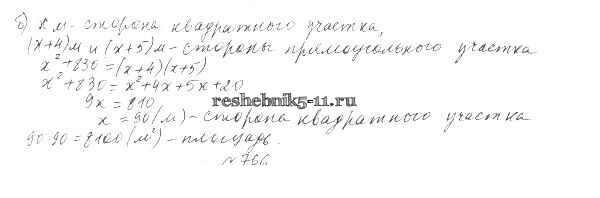 б) x м - сторона квадратного участка,
(x+4) м и (x+5) м - стороны прямоугольного участка
x²+830=(x+4)(x+5)
x²+830=x²+4x+5x+20
9x=810
reshebnik5-11.ru
x=90 (м) - сторона квадратного участка
90·90=8100 (м²) - площадь.
№766